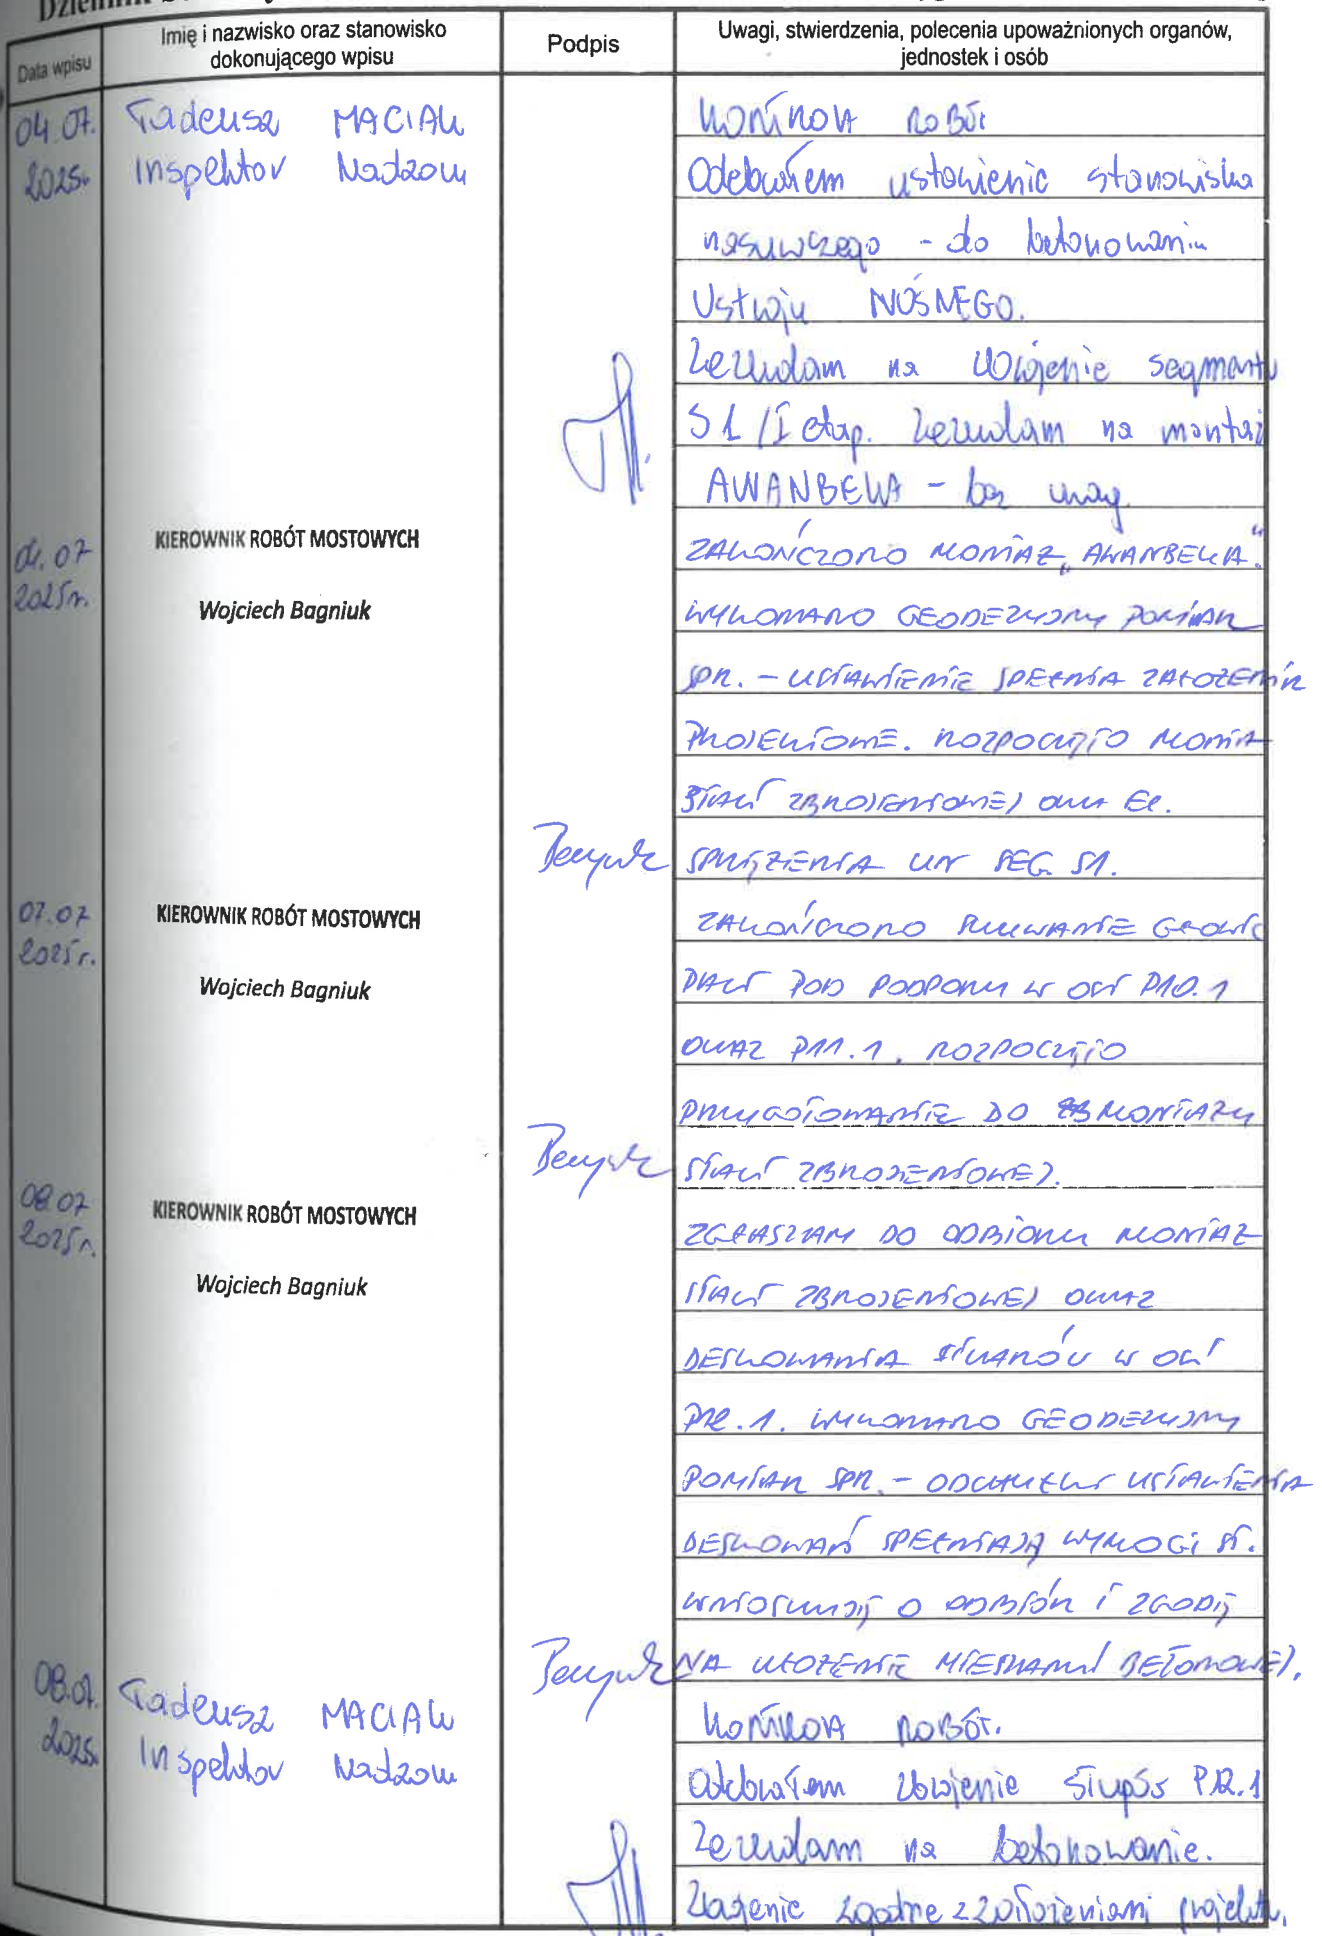 Data wpisu
Imię i nazwisko oraz stanowisko
dokonującego wpisu
Podpis
Uwagi, stwierdzenia, polecenia upoważnionych organów,
jednostek i osób
04.07.
2025r
Tadeusz MACIAK
Inspektor Nadzoru
KONTROLA ROBÓT
Odebrałem ustawienie stanowiska
nasuwczego - do betonowania
Ustroju NOŚNEGO.
Zezwalam na zbrojenie segmentu
S1 / I etap. Zezwalam na montaż
AWANBEKA - bez uwag
04.07
2025r.
KIEROWNIK ROBÓT MOSTOWYCH
Wojciech Bagniuk
ZAKOŃCZONO MONTAŻ „AWANBEKA".
WYKONANO GEODEZYJNY POMIAR
SPR. - USTAWIENIE SPEŁNIA ZAŁOŻENIA
PROJEKTOWE. ROZPOCZĘTO MONTAŻ
STALI ZBROJENIOWEJ ORAZ EL.
SPRĘŻENIA UN SEG. S1.
07.07
2025r.
KIEROWNIK ROBÓT MOSTOWYCH
Wojciech Bagniuk
ZAKOŃCZONO SKUWANIE GŁOWIC
PALI POD PODPORY W OSI P10.1
ORAZ P11.1. ROZPOCZĘTO
PRZYGOTOWANIE DO MONTAŻU
STALI ZBROJENIOWEJ.
08.07
2025r.
KIEROWNIK ROBÓT MOSTOWYCH
Wojciech Bagniuk
ZGŁASZAM DO ODBIORU MONTAŻ
STALI ZBROJENIOWEJ ORAZ
DESKOWANIA W OSI
P12.1. WYKONANO GEODEZYJNY
POMIAR SPR. - ODCHYŁKI USTAWIENIA
DESKOWAŃ SPEŁNIAJĄ WYMOGI ST.
WNIOSKUJĘ O ODBIÓR I ZGODĘ
NA UŁOŻENIE MIESZANKI BETONOWEJ.
08.07.
2025r
Tadeusz MACIAK
Inspektor Nadzoru
KONTROLA ROBÓT.
Odebrałem zbrojenie słupów P12.1
Zezwalam na betonowanie.
zgodne z założeniami projektu.